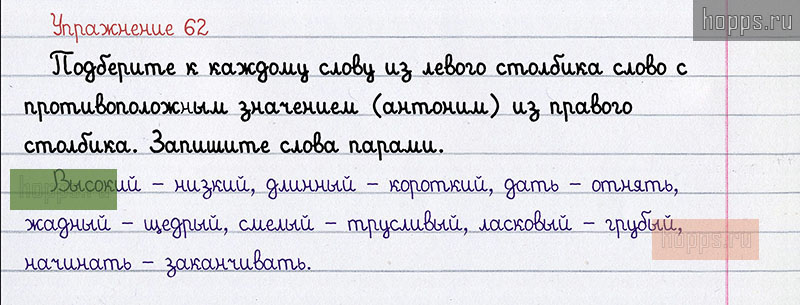 hopps.ru
Упражнение 62
Подберите к каждому слову из левого столбика слово с
противоположным значением (антоним) из правого
столбика. Запишите слова парами.
Высокий – низкий, длинный – короткий, дать – отнять,
hopps.ru
жадный – щедрый, смелый – трусливый, ласковый – грубый,
hopps.ru
начинать – заканчивать.